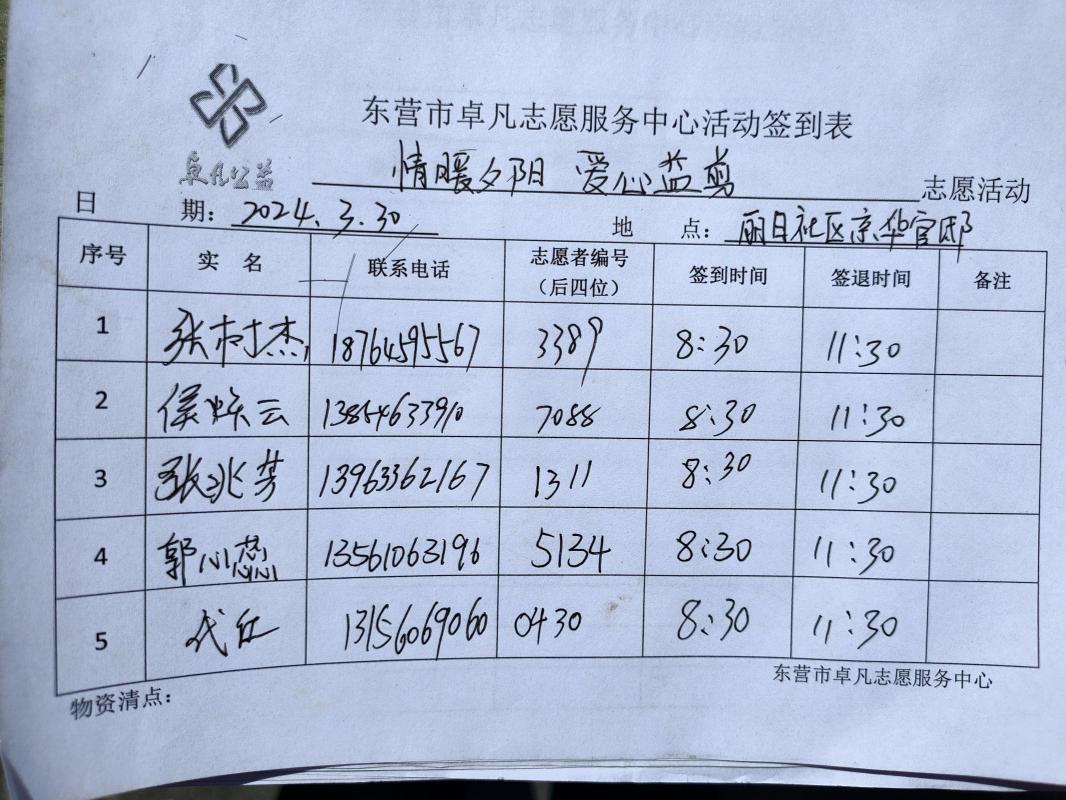 东营市卓凡志愿服务中心活动签到表
卓凡公益
情暖夕阳 爱心益剪 志愿活动
日 期: 2024.3.30 地 点: 丽日社区京华官邸
序号 实 名 联系电话 志愿者编号（后四位） 签到时间 签退时间 备注
1 张树杰 18764595567 3389 8:30 11:30
2 侯焕云 13854633910 7088 8:30 11:30
3 张兆芳 13963362167 1311 8:30 11:30
4 郭心蕊 13561063196 5134 8:30 11:30
5 代红 13156069060 0430 8:30 11:30
东营市卓凡志愿服务中心
物资清点: